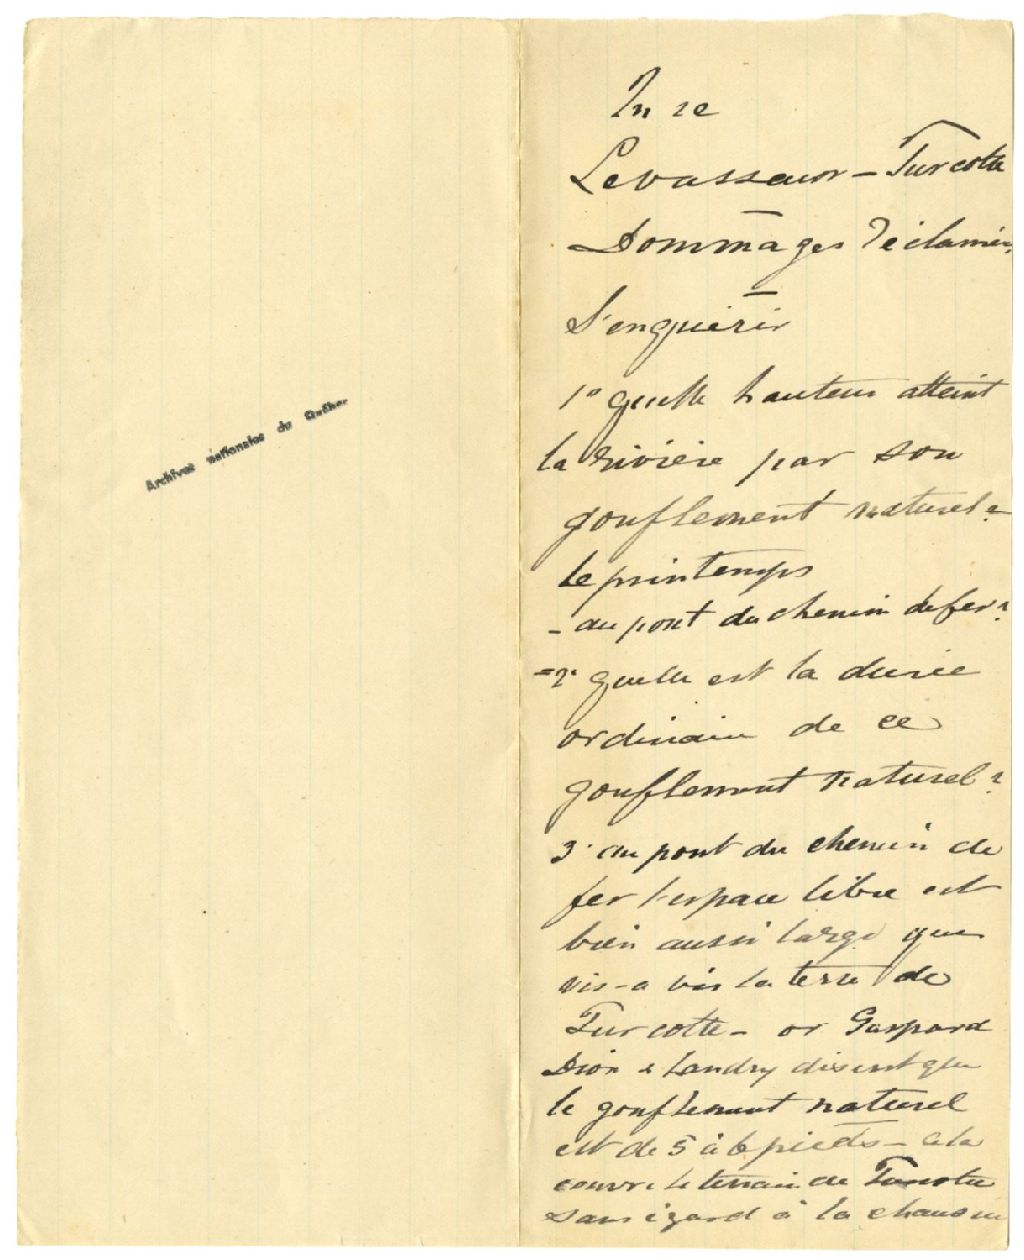 Archives nationales du Québec
In re
Levasseur - Turcotte
Dommages réclamés
S'enquérir
1° quelle hauteur atteint
la rivière par son
gonflement naturel
le printemps
- au pont du chemin de fer?
= 2° quelle est la durée
ordinaire de ce
gonflement naturel?
3° au pont du chemin de
fer l'espace libre est
bien aussi large que
vis-a vis la terre de
Turcotte - or Gaspard
Dion & Landry disent que
le gonflement naturel
est de 5 à 6 pieds - cela
couvre le terrain de Turcotte
sans égard à la chaussée